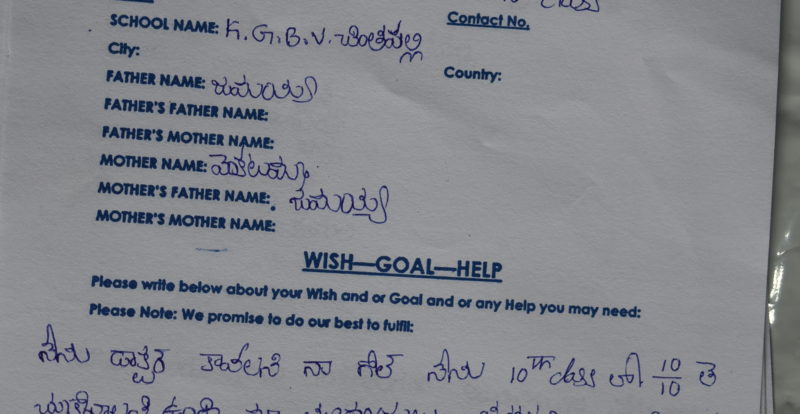 Contact No.
SCHOOL NAME: K.G.B.V. చింతపల్లి
City:
Country:
FATHER NAME: రామయ్య
FATHER'S FATHER NAME:
FATHER'S MOTHER NAME:
MOTHER NAME:
MOTHER'S FATHER NAME: రామయ్య
MOTHER'S MOTHER NAME:
WISH—GOAL—HELP
Please write below about your Wish and or Goal and or any Help you may need:
Please Note: We promise to do our best to fulfil:
నేను డాక్టర్ కావాలని నా గోల్ నేను 10th class లో 10/10 తె